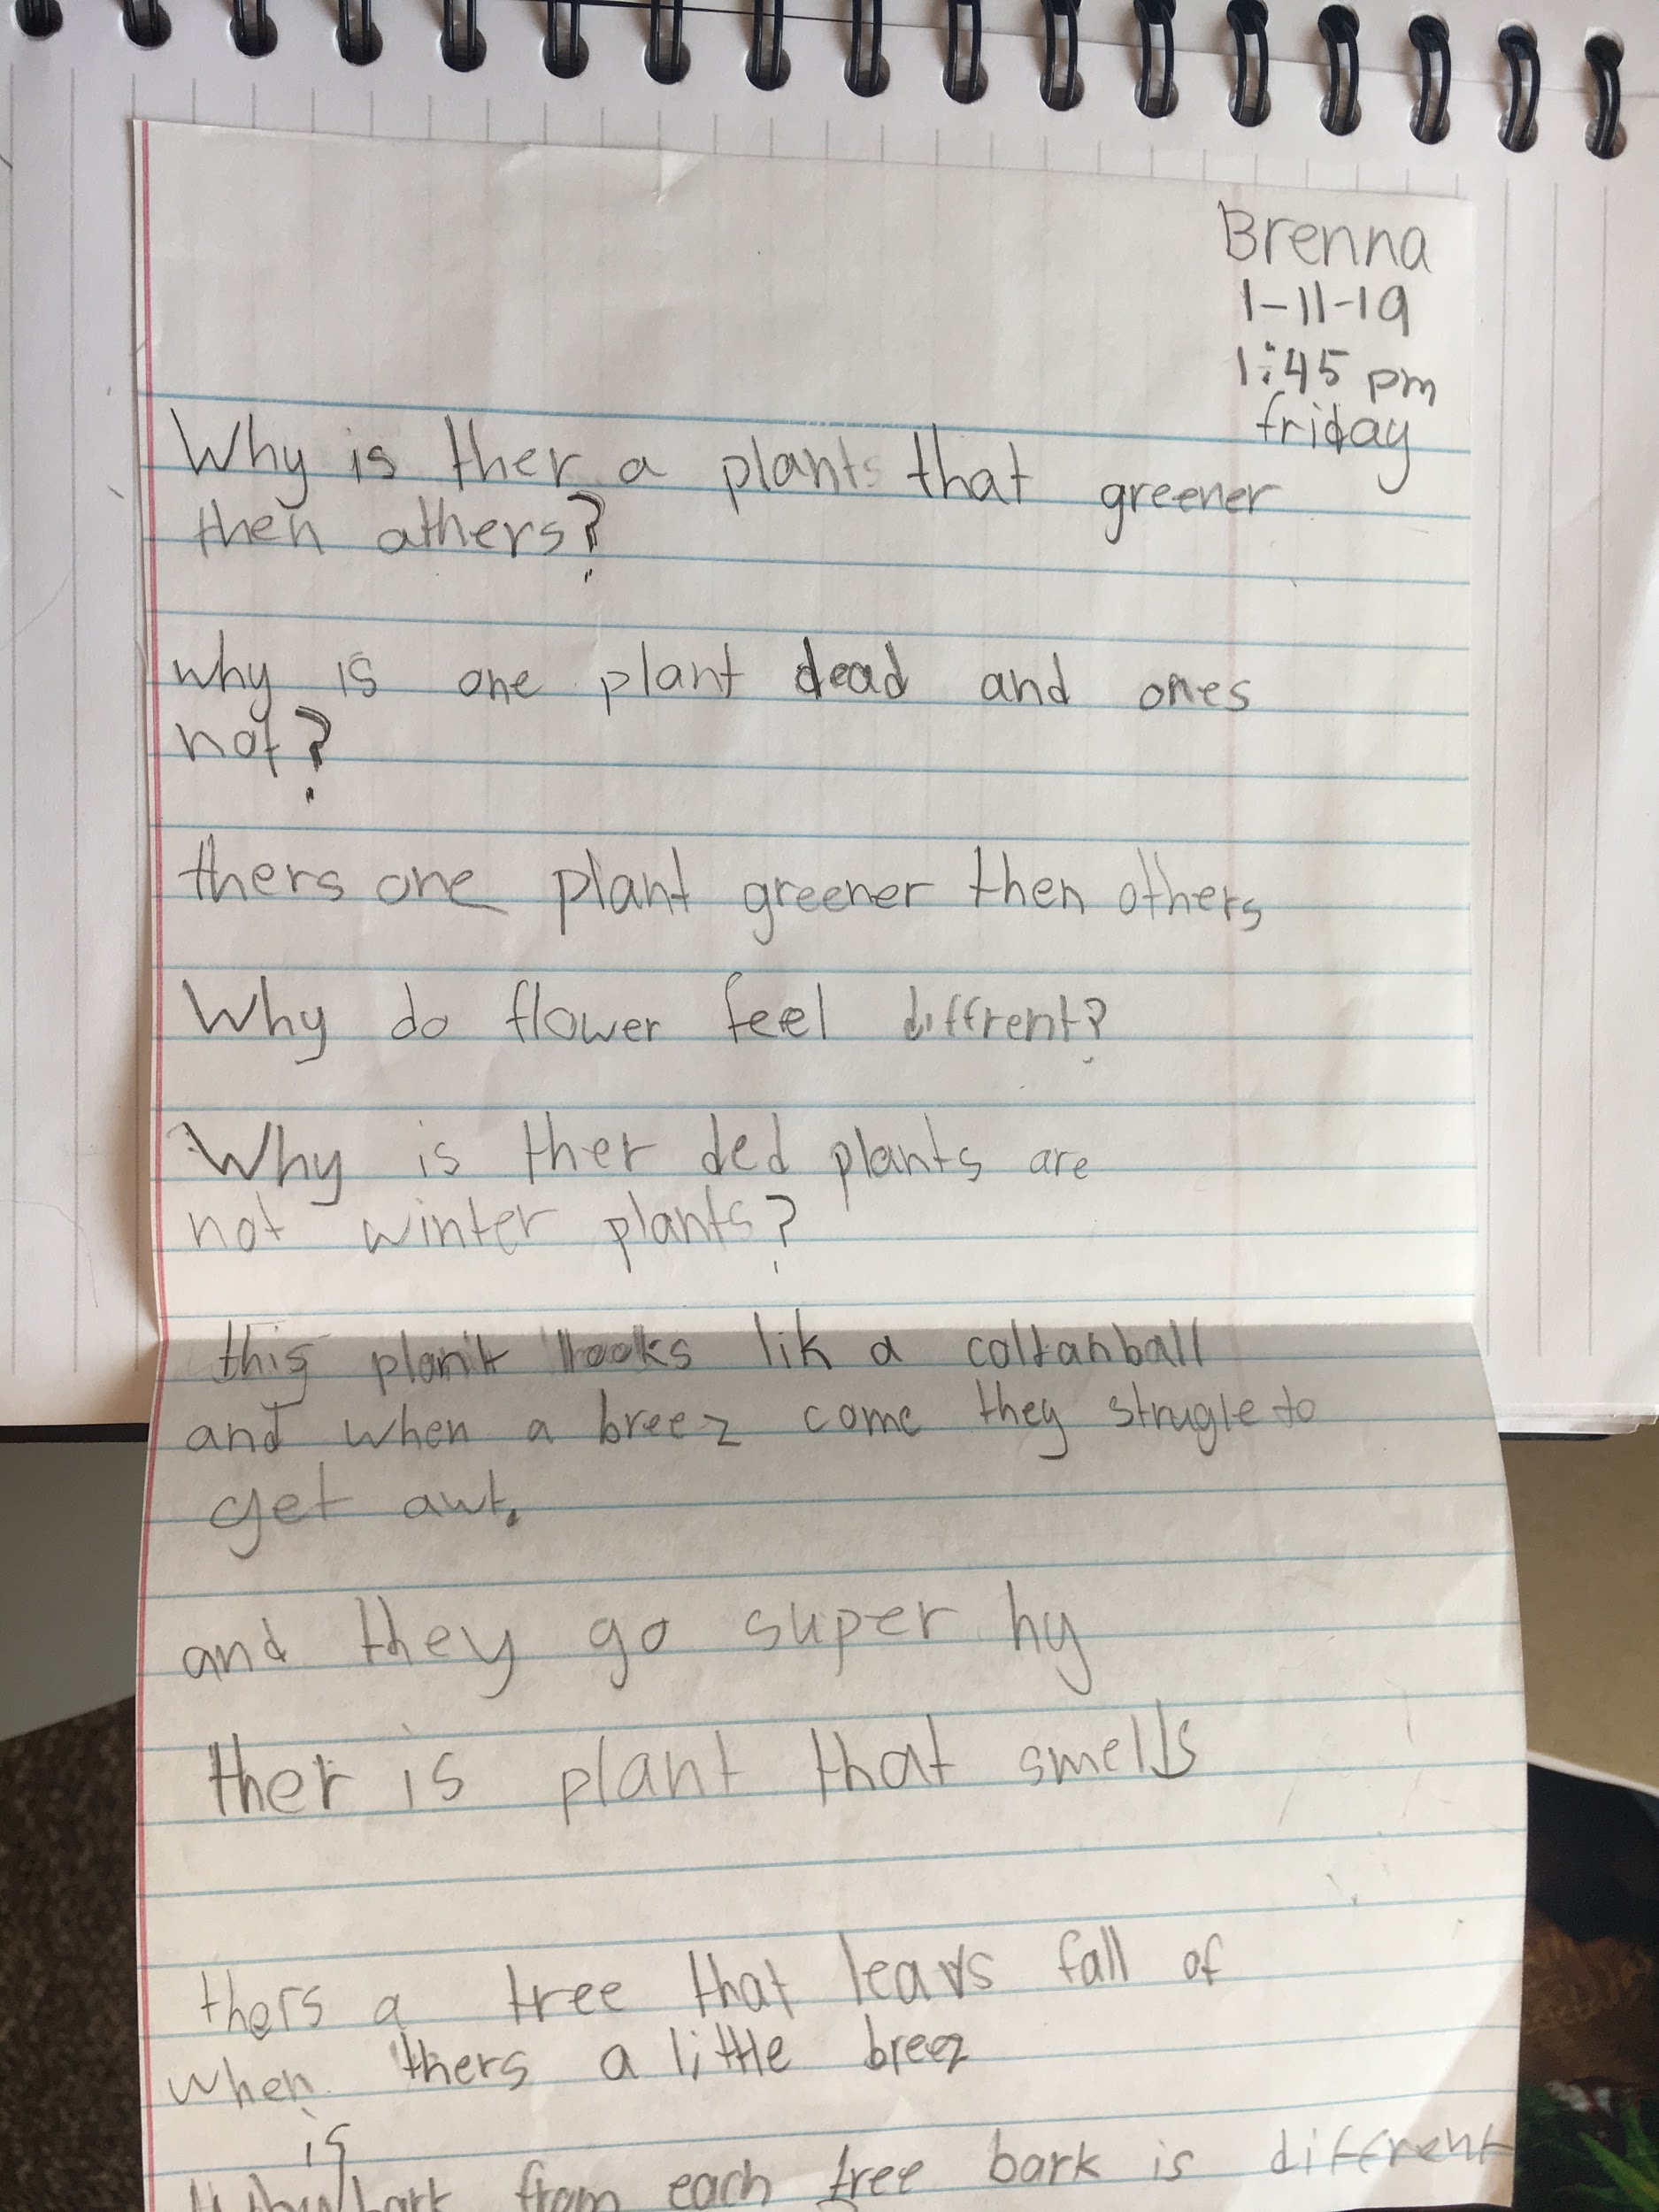 Brenna
1-11-19
1:45 pm
friday
Why is ther a plants that greener
then athers?
why is one plant dead and ones
not?
thers one plant greener then others
Why do flower feel diffrent?
Why is ther ded plants are
not winter plants?
this plant looks lik a coltanball
and when a breez come they strugle to
get awt.
and they go super hy
ther is plant that smells
thers a tree that leavs fall of
when thers a little breez
is
bark from each tree bark is diffrent